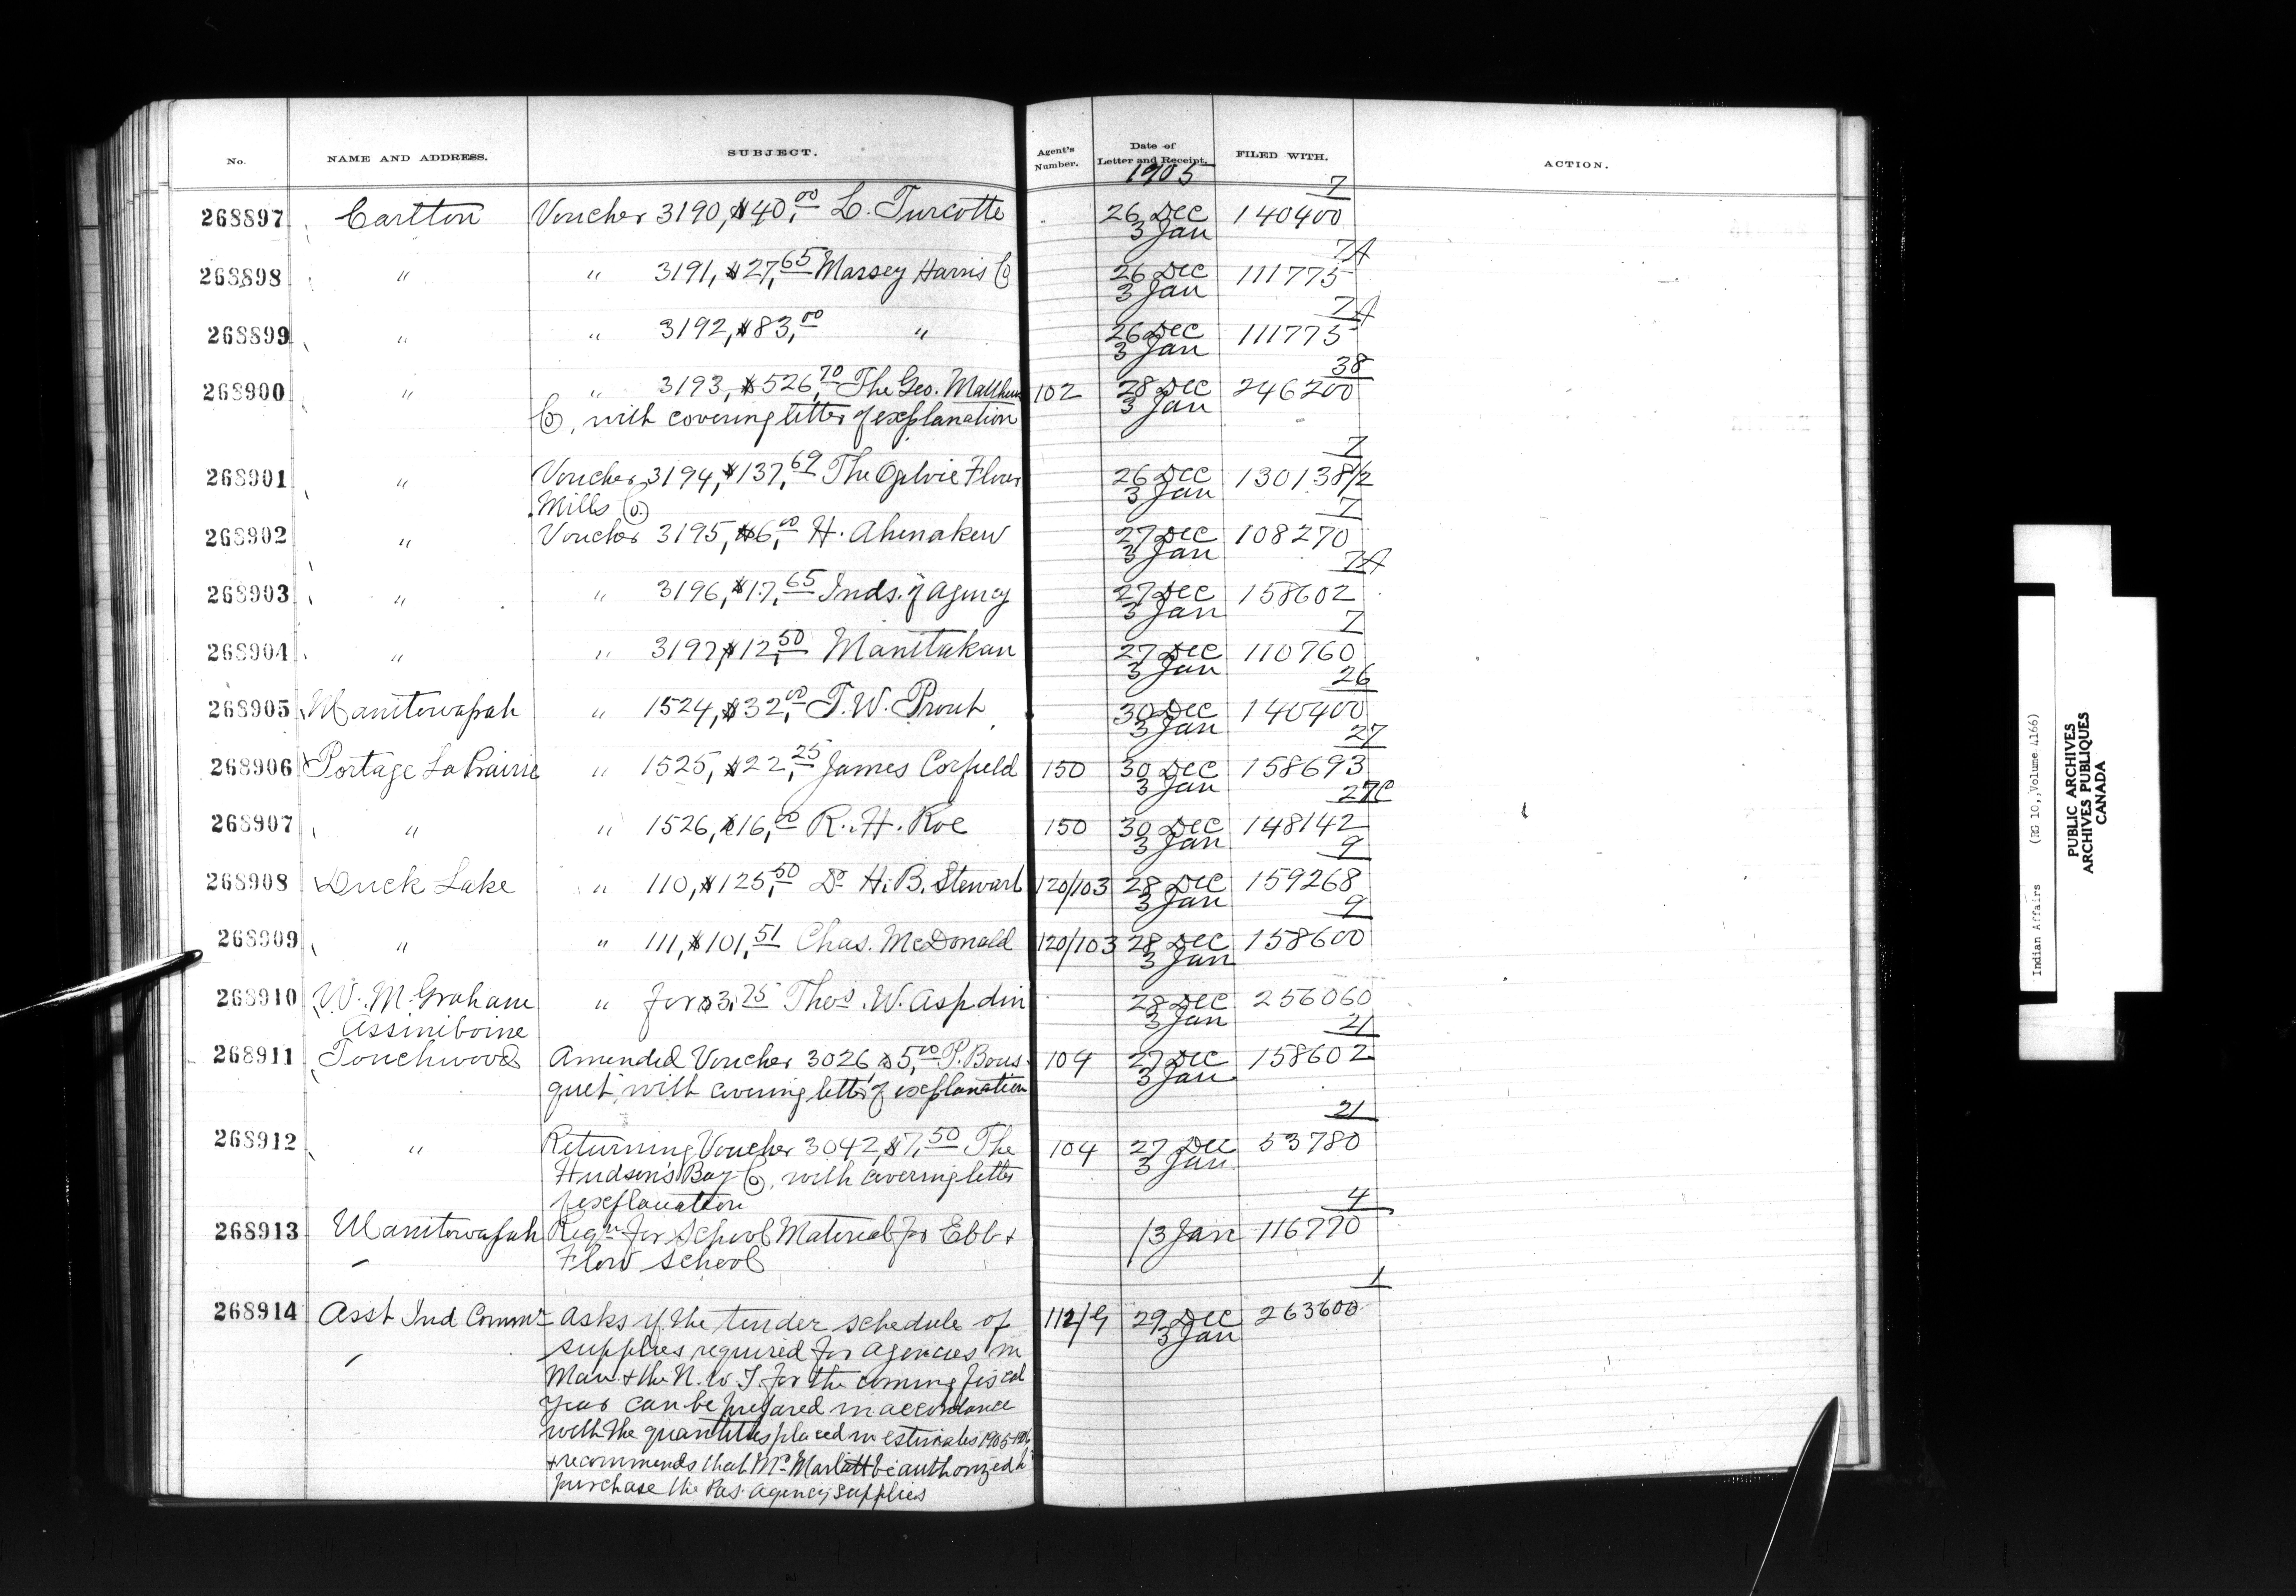 No. NAME AND ADDRESS. SUBJECT. Agent's Number. Date of Letter and Receipt. FILED WITH. ACTION.
1905
268897 Carlton Voucher 3190, $40,00 L. Turcotte 26 Dec 3 Jan 140400 7
268898 " " 3191, $27,65 Massey Harris Co 26 Dec 3 Jan 111775 7A
268899 " " 3192, $83,00 " 26 Dec 3 Jan 111775 7A
268900 " " 3193, $526,70 The Geo. Matthews 102 28 Dec 3 Jan 246200 38
Co, with covering letter of explanation
268901 " Voucher 3194, $137,69 The Ogilvie Flour 26 Dec 3 Jan 130138½ 7
Mills Co.
268902 " Voucher 3195, $6,00 H. Ahenakew 27 Dec 3 Jan 108270 7
268903 " " 3196, $17,65 Inds. of Agency 27 Dec 3 Jan 158602 7A
268904 " " 3197, $12,50 Manitukan 27 Dec 3 Jan 110760 7
268905 Manitowapah " 1524, $32,00 T. W. Prout 30 Dec 3 Jan 140400 26
268906 Portage La Prairie " 1525, $22,25 James Corfield 150 30 Dec 3 Jan 158693 27
268907 " " 1526, $16,00 R. H. Roe 150 30 Dec 3 Jan 148142 27C
268908 Duck Lake " 110, $125,50 Dr H. B. Stewart 120/103 28 Dec 3 Jan 159268 9
268909 " " 111, $101,51 Chas. McDonald 120/103 28 Dec 3 Jan 158600 9
268910 W. M. Graham " for $3.75 Thos. W. Aspdin 28 Dec 3 Jan 256060
Assiniboine
268911 Touchwood Amended Voucher 3026, $5,00 P. Bous- 109 27 Dec 3 Jan 158602 21
quet, with covering letter of explanation
268912 " Returning Voucher 3042, $7,50 The 104 27 Dec 3 Jan 53780 21
Hudson's Bay Co, with covering letter
of explanation
268913 Manitowapah Reqn for School Material for Ebb & /3 Jan 116770 4
Flow School
268914 Asst Ind Commr Asks if the tender schedule of 112/G 29 Dec 3 Jan 263600 1
supplies required for agencies in
Man. & the N. W. T. for the coming fiscal
year can be prepared in accordance
with the quantities placed in estimates 1905-1906
& recommends that Mr. Marlatt be authorized to
purchase the Pas Agency supplies
Indian Affairs (RG 10, Volume 4166)
PUBLIC ARCHIVES
ARCHIVES PUBLIQUES
CANADA